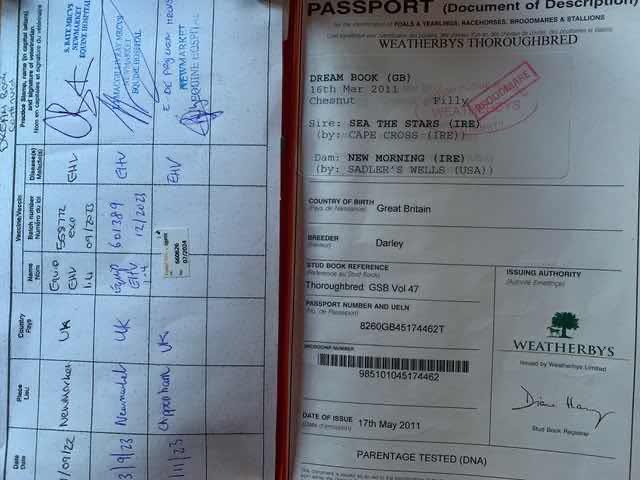 DREAM BOOK
Practice Stamp, name (in capital letters) and signature of veterinarian
Nom en capitales et signature du vétérinaire
S. BATE MRCVS
NEWMARKET
EQUINE HOSPITAL
MRCVS
NEWMARKET
EQUINE HOSPITAL
NEWMARKET
EQUINE HOSPITAL
Disease(s)
Maladie(s)
EHV
EHV
EHV
Vaccine/Vaccin
Batch number
Numéro du lot
558772
09/2023
601389
12/2023
660626
07/2024
Name
Nom
Equip
EHV
1.4
Equip
EHV
1-4
Country
Pays
UK
UK
UK
Place
Lieu
Newmarket
Newmarket
Chippenham
Date
Date
/09/22
3/9/23
/11/23
PASSPORT (Document of Description)
for the identification of FOALS & YEARLINGS, RACEHORSES, BROODMARES & STALLIONS
WEATHERBYS THOROUGHBRED
DREAM BOOK (GB)
16th Mar 2011
Chesnut Filly
BROODMARE
WEATHERBYS
Sire: SEA THE STARS (IRE)
(by: CAPE CROSS (IRE))
Dam: NEW MORNING (IRE)
(by: SADLER'S WELLS (USA))
COUNTRY OF BIRTH
(Pays de Naissance)
Great Britain
BREEDER
(Eleveur)
Darley
STUD BOOK REFERENCE
(Reference au Stud Book)
Thoroughbred: GSB Vol 47
PASSPORT NUMBER AND UELN
(No. de Passeport)
8260GB45174462T
MICROCHIP NUMBER
985101045174462
DATE OF ISSUE
(Date d'émission)
17th May 2011
ISSUING AUTHORITY
(Autorité Emettrice)
WEATHERBYS
Issued by Weatherbys Limited
Stud Book Registrar
PARENTAGE TESTED (DNA)